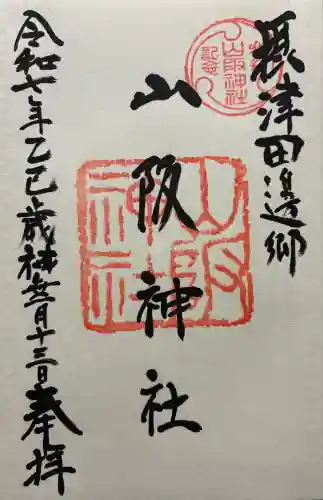 摂津田邊郷
山阪神社
参拝記念
山阪神社
山阪神社
令和七年乙巳歳神無月十三日奉拝